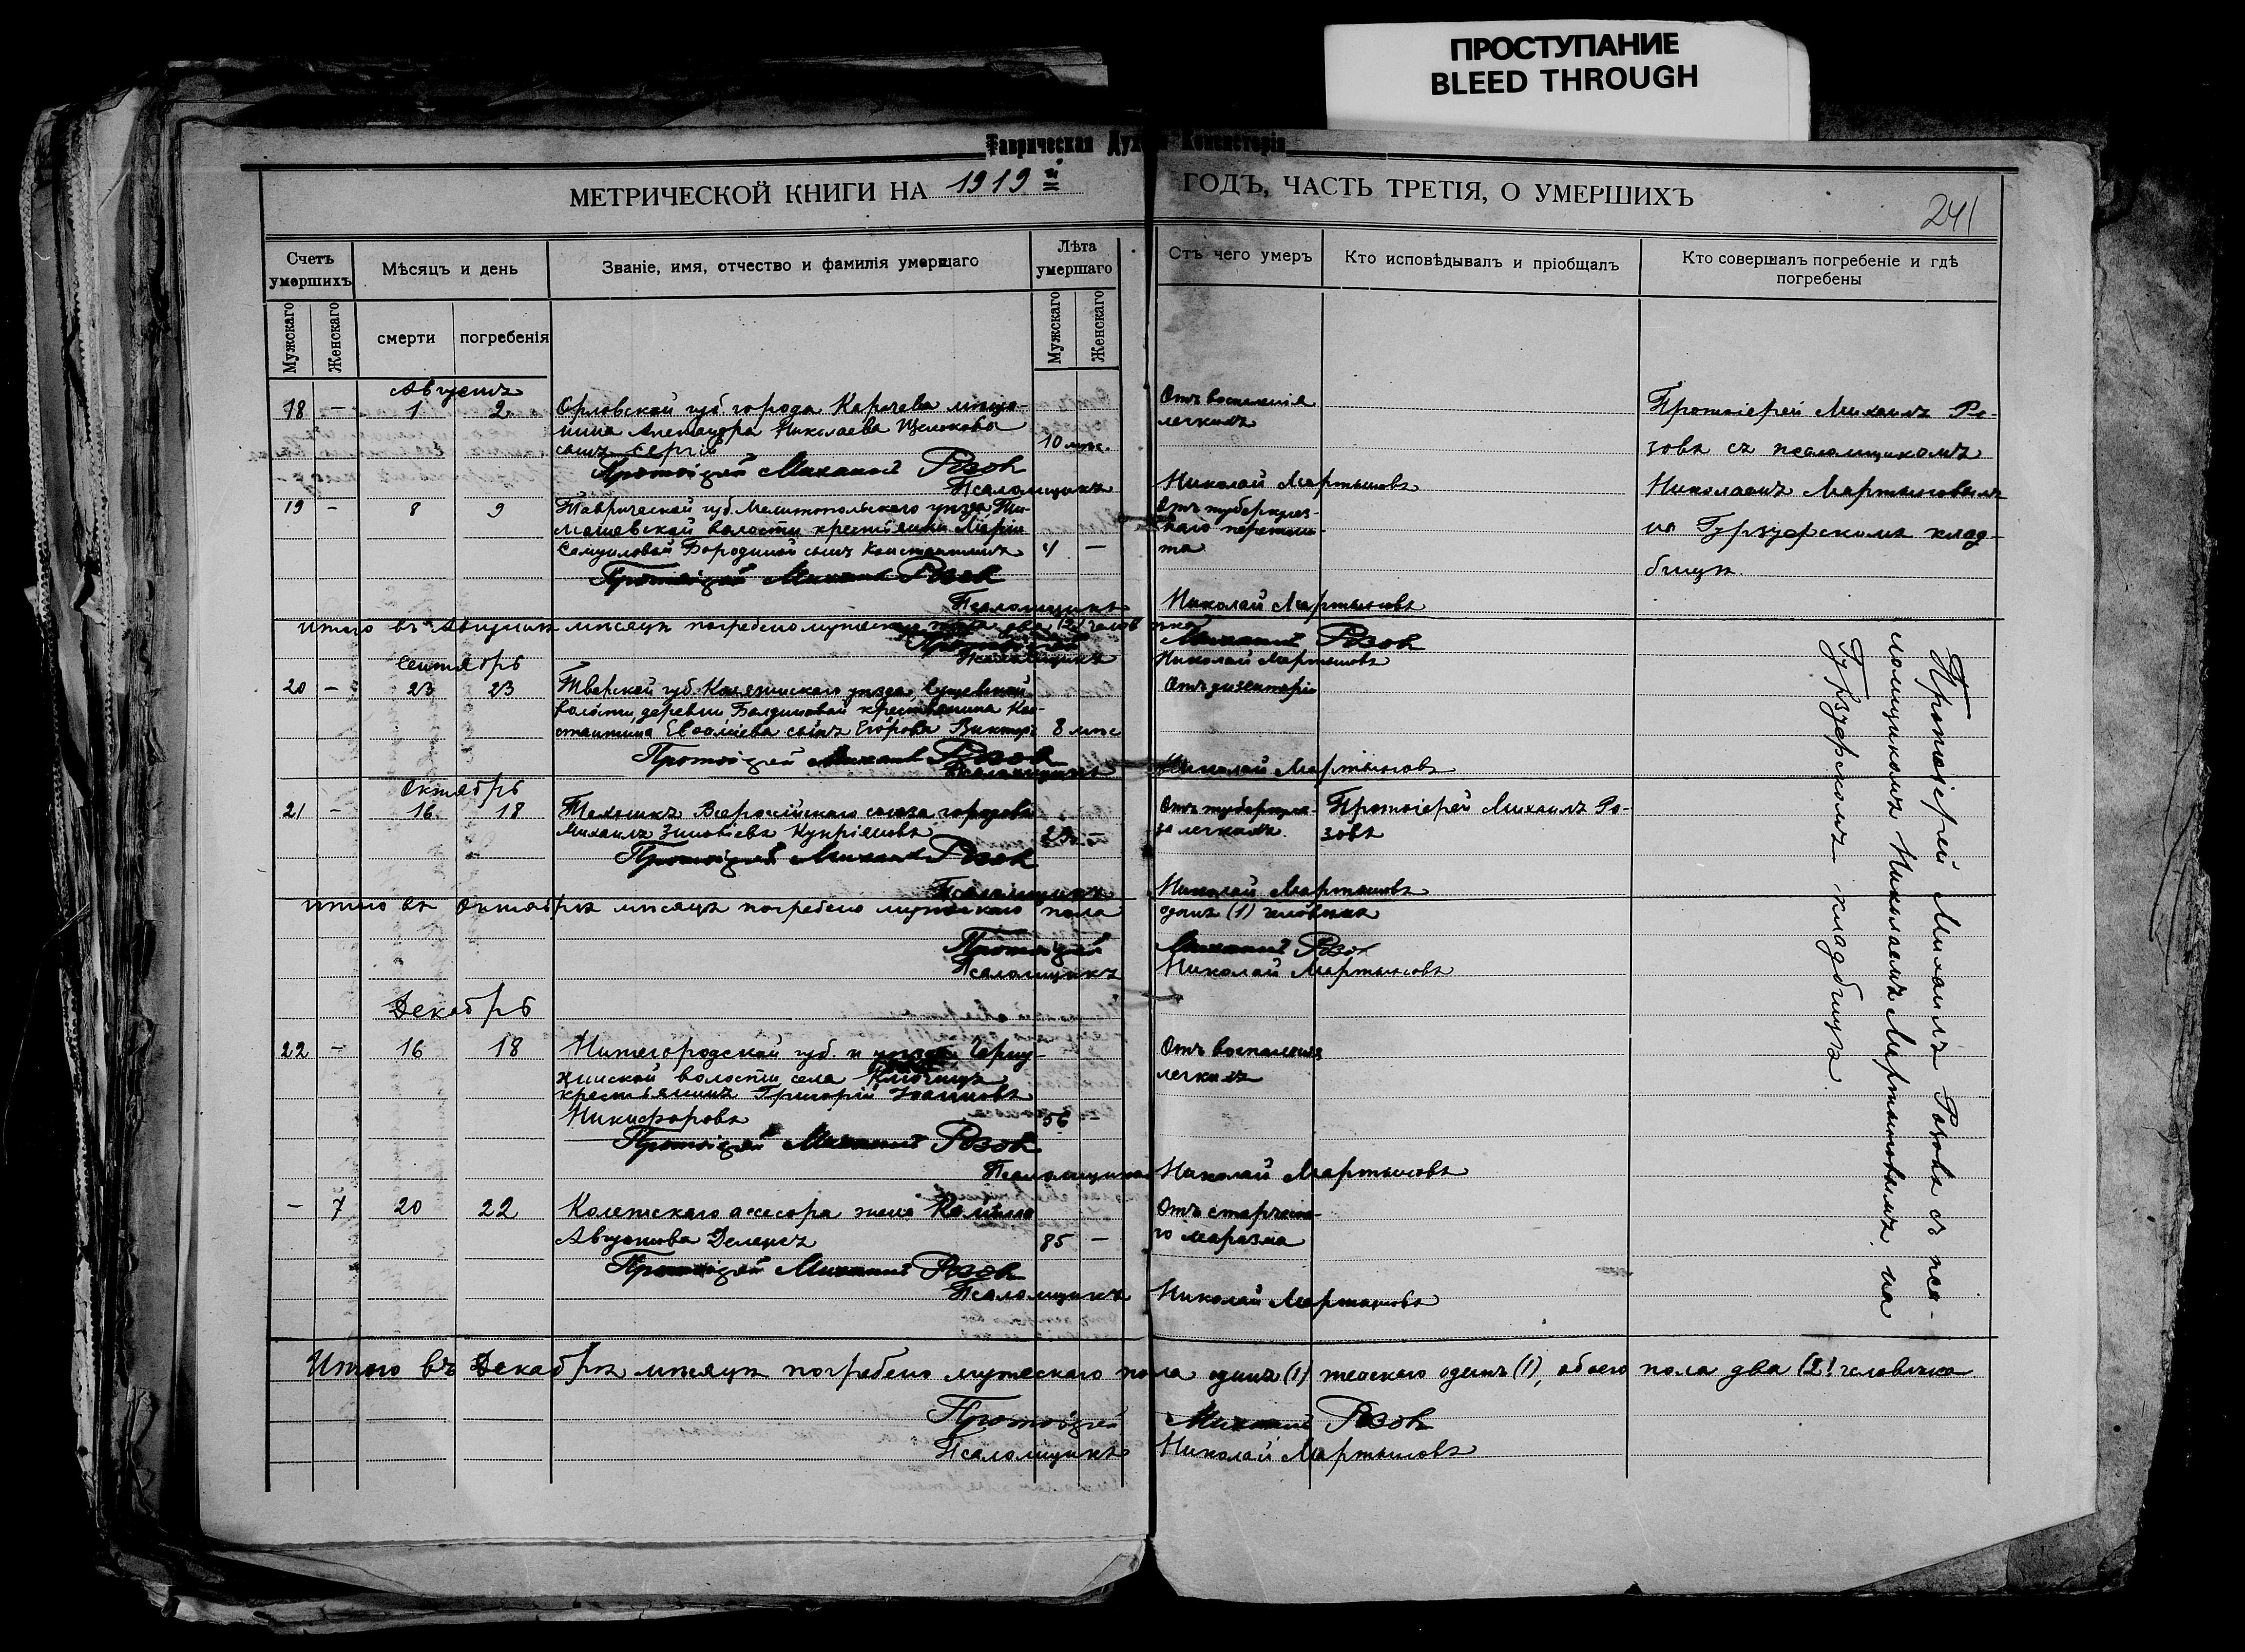 ПРОСТУПАНИЕ
BLEED THROUGH
Таврическая Дух Консисторія
МЕТРИЧЕСКОЙ КНИГИ НА 1919й ГОДЪ, ЧАСТЬ ТРЕТІЯ, О УМЕРШИХЪ
241
Счетъ умершихъ
Мѣсяцъ и день
Званіе, имя, отчество и фамилія умершаго
Лѣта умершаго
Отъ чего умеръ
Кто исповѣдывалъ и пріобщалъ
Кто совершалъ погребеніе и гдѣ погребены
Мужскаго
Женскаго
смерти
погребенія
Мужскаго
Женскаго
Августъ
18 - 1 2 Орловской губ. города Карачева мѣща- Отъ воспаленія Протоіерей Михаилъ Ро-
нина Александра Николаева Щелокова легкихъ
сынъ Сергій 10 мѣс. зовъ съ псаломщикомъ
Протоіерей Михаилъ Розовъ
Псаломщикъ Николай Мартыновъ Николаемъ Мартыновымъ
19 - 8 9 Таврической губ. Мелитопольского уѣзда Ти- Отъ туберкулез-
мошевской волости крестьянки Маріи наго перетони- на Гурзуфскомъ клад-
Самуиловой Бородиной сынъ Константинъ 4 - та
бищѣ.
Протоіерей Михаилъ Розовъ
Псаломщикъ Николай Мартыновъ
Итого въ Августѣ мѣсяцѣ погребено мужескаго пола два (2) человѣка
Протоіерей Михаилъ Розовъ
Псаломщикъ Николай Мартыновъ
Сентябрь
20 - 23 23 Тверской губ. уѣзда, Отъ дизентеріи
волости, деревни крестьянина Кон-
стантина сынъ Викторъ 8 мѣс
Протоіерей Михаилъ Розовъ
Псаломщикъ Николай Мартыновъ
Октябрь
21 - 16 18 Техникъ Всероссійскаго союза городовъ Отъ туберкуле- Протоіерей Михаилъ Ро-
Михаилъ Зиновіевъ Купріяновъ - за легкихъ зовъ
Протоіерей Михаилъ Розовъ
Псаломщикъ Николай Мартыновъ
Итого въ Октябрѣ мѣсяцѣ погребено мужескаго пола одинъ (1) человѣкъ
Протоіерей Михаилъ Розовъ
Псаломщикъ Николай Мартыновъ
Декабрь
22 - 16 18 Нижегородской губ. и уѣзда Отъ воспаленія
волости села легкихъ
крестьянинъ Григорій Іоанновъ
Никифоровъ 56 -
Протоіерей Михаилъ Розовъ
Псаломщикъ Николай Мартыновъ
- 7 20 22 Колежскаго ассесора жена Отъ старческа-
Августова 85 - го маразма
Протоіерей Михаилъ Розовъ
Псаломщикъ Николай Мартыновъ
Протоіерей Михаилъ Розовъ съ пса-
ломщикомъ Николаемъ Мартыновымъ на
Гурзуфскомъ кладбищѣ.
Итого въ Декабрѣ мѣсяцѣ погребено мужескаго пола одинъ (1) женскаго одинъ (1), обоего пола два (2) человѣка
Протоіерей Михаилъ Розовъ
Псаломщикъ Николай Мартыновъ